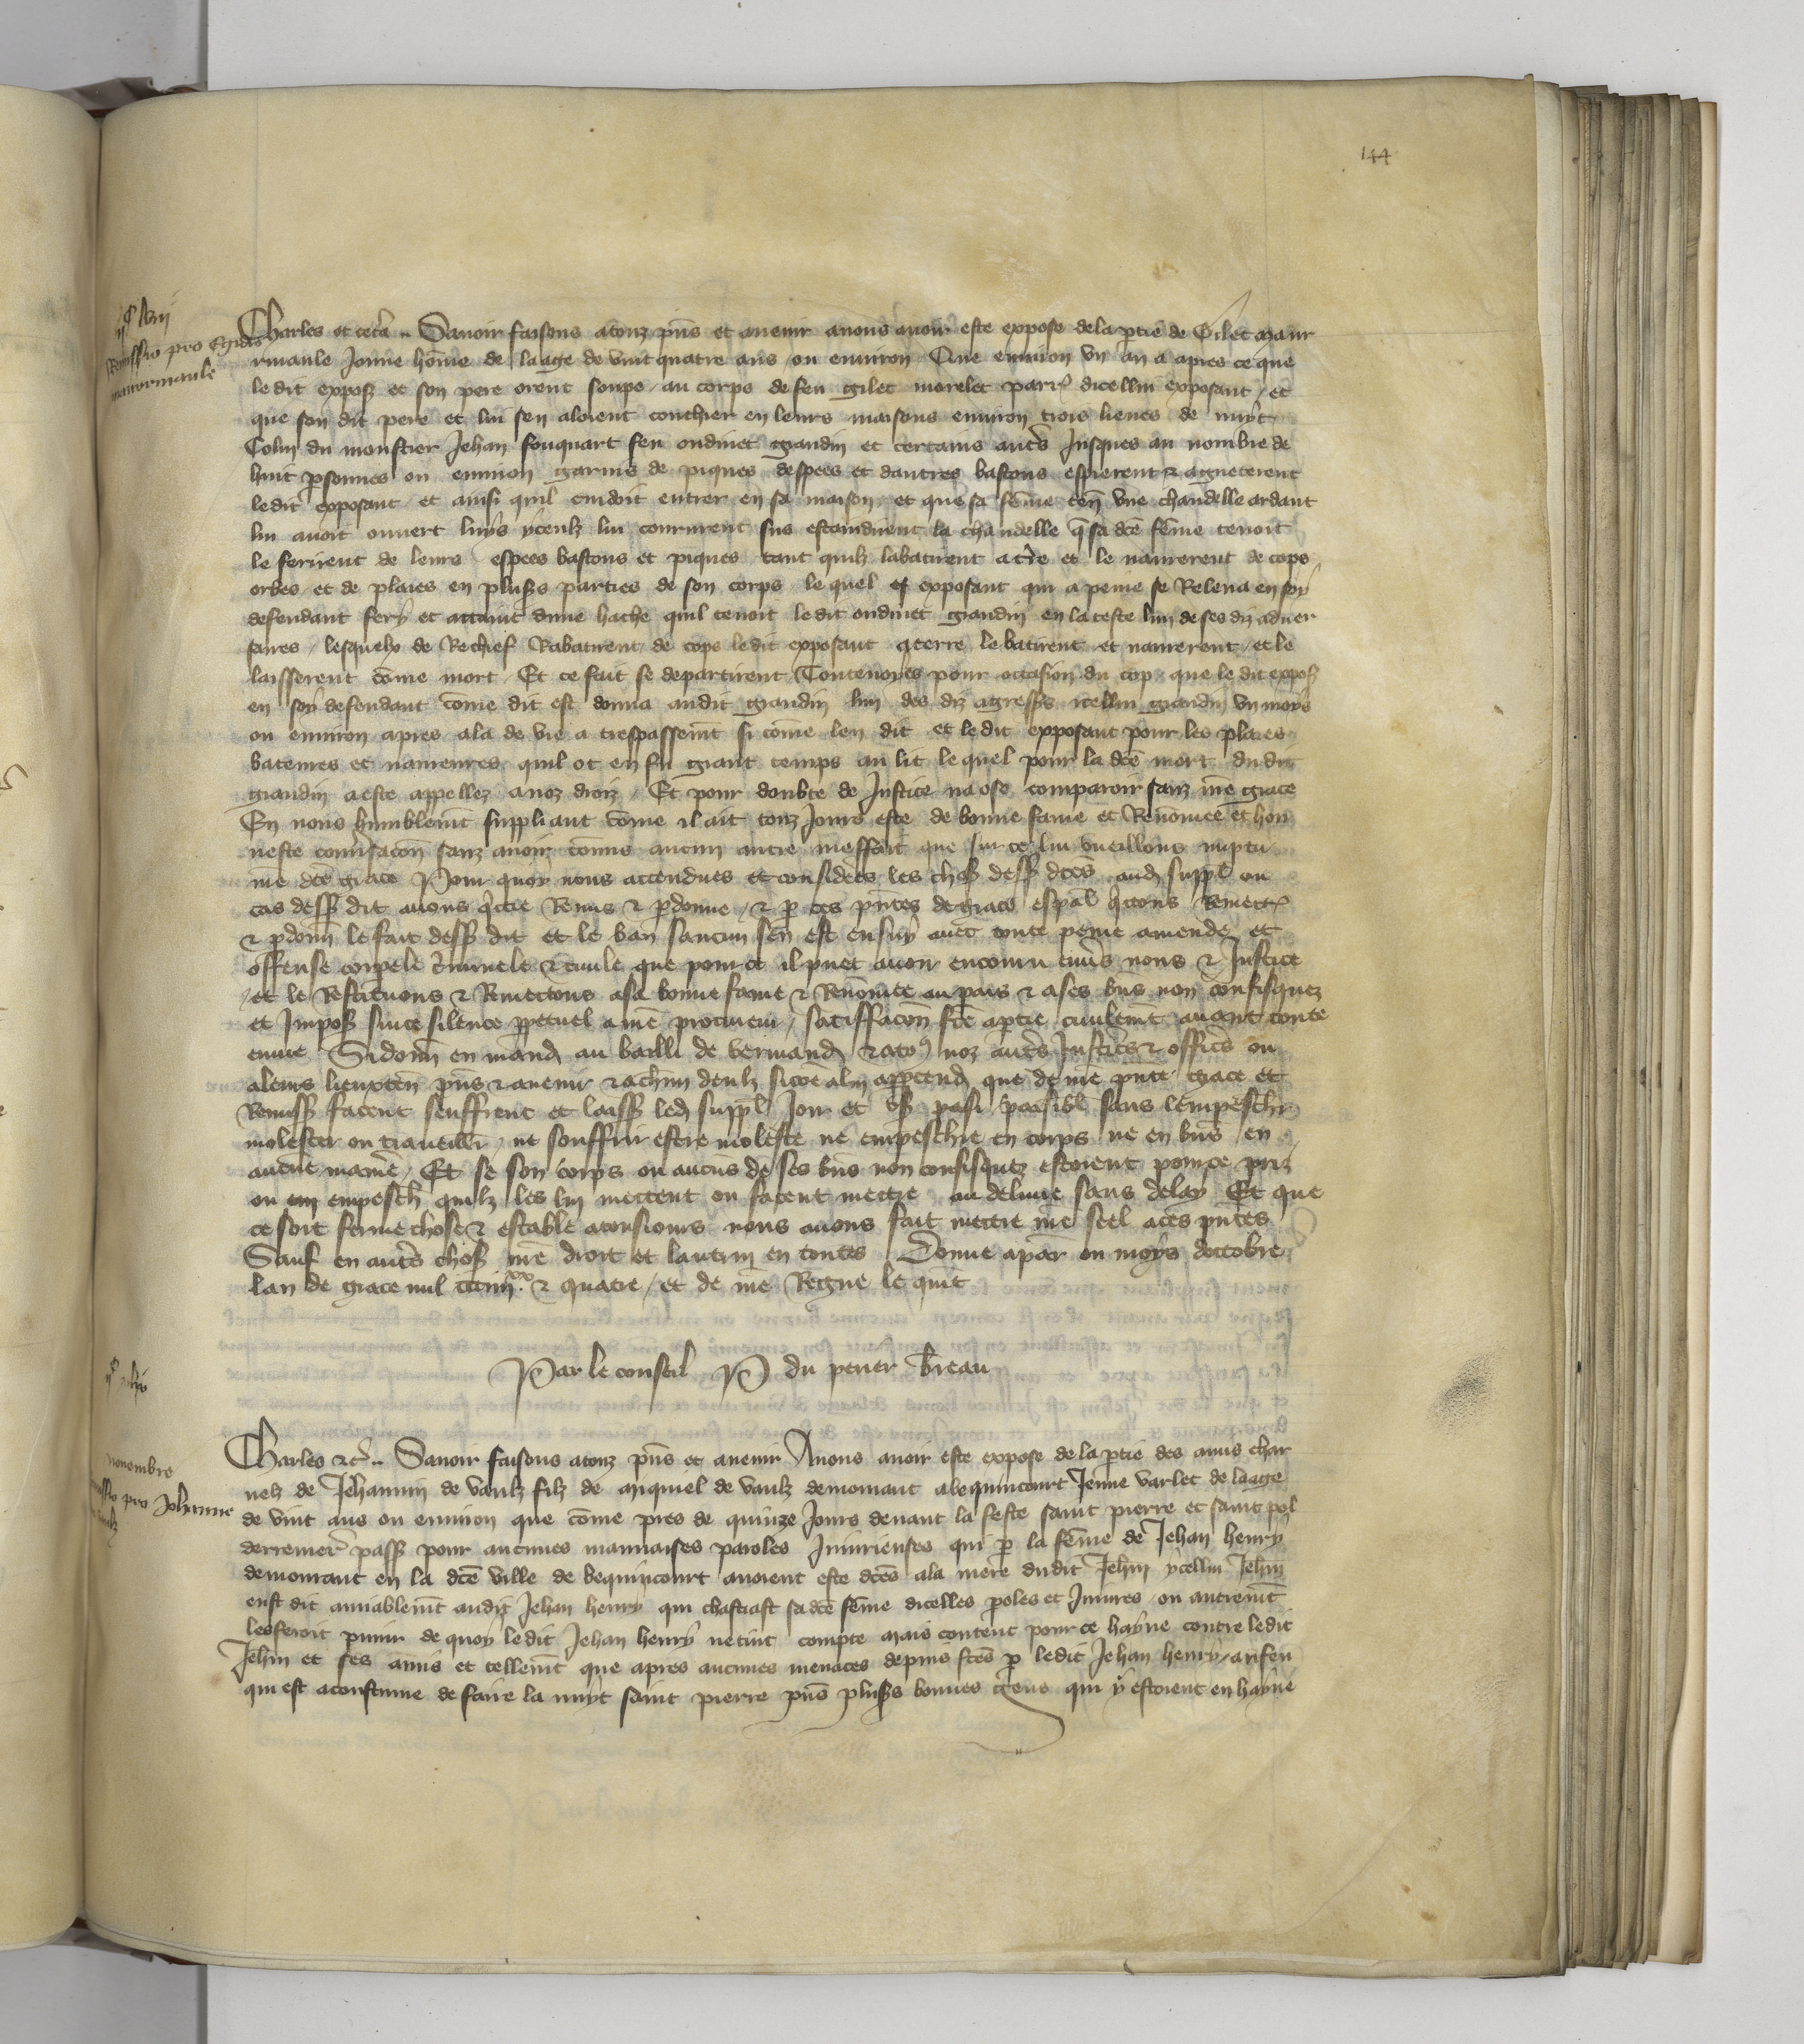 144
Remissio pro Egidio
mauormaule
Charles et cetera .. Sauoir faisons a touz pns et auenir a nous auoir este expose de la ptie de Gilet maur
rmaule Jonne home de laage de vint quatre ans ou enuiron Que enuiron vn an a apres ce que
le dit exposz et son pere orent soupe / au corps de feu gilet morelet parr dicellui exposant / et
que son dit pere et lui sen aloient couchier en leurs maisons enuiron trois lieues de nuyt
Colin du monstier Jehan fouquart feu oudinet grandin et certains autes Jusques au nombre de
huit psonnes ou enuiron garnis de piques despees et dautres bastons espierent & agueterent
ledit exposant et ainsi quil cuidoit entrer en sa maison et que sa feme ten vne chandelle ardant
lui auoit ouuert luys yceulz lui coururent sus estaindirent la chandelle q sa dce feme tenoit
le ferirent de leurs espees bastons et piques tant quilz labatirent a tre et le naurerent de cops
orbes et de plaies en plusss parties de son corps le quel exposant qui a peine se Releua en soy
defendant fery et attaint dune hache quil tenoit ledit oudinet grandin en la teste lun de ses diz aduer
saires / lesquelx de Rechief Rabatirent de cops ledit exposant a terre le batirent et naurerent / et le
laisserent come mort / Et ce fait se departirent Toutesuoyes pour occasion du cop que le dit exposz
en soy defendant come dit est donna audit grandin lun des diz agresss icellui grandin vn moys
ou enuiron apres ala de vie a trespassemt si come len dit et ledit exposant pour les plaies
bateures et naureures quil ot en fu grant temps au lit le quel pour la dce mort du dit
grandin a este appellez a noz droiz / Et pour doubte de Justice na ose comparoir sanz nre grace
En nous humblemt suppliant come il ait touz Jours este de bonne fame et Renomee et hon
neste conusacon sanz auoir comis aucun autre meffait que sur ce lui vueillons impti
nre dce grace Pour quoy nous attendues et considees les choss dess dces aud suppl ou
cas dess dit auons qctie Remis & pdonne / & p ces pntes de grace espal qctons Remett
& pdonn le fait dess dit et le ban saucun sen est ensuy auec toute peine amende et
offense corpele criminele & ciuile que pour ce il puet auoir encouru enus nous & Justice
/ et le Restituons & Remettons a sa bonne fame & Renomee au pais & a ses bns non confisquez
et Imposz sur ce silence ppetuel a nre procureur / satisfacon fce a ptie ciuilemt auant toute
euure Si donn en mand au bailli de vermand & a to9 noz autes Justices & offices ou
a leurs lieuxten pns & auenir & a chun deulz si coe a lui apptend que de nre pnte grace et
Remiss facent seuffrent et laiss led suppl Jour et vs pasi paisibl sans lempeschr
molester ou trauaillr / ne souffrir estre moleste ne empeschie en corps ne en bns en
aucune maniere / Et se son corps ou aucus de ses bns non confisquez estoient pour ce priz
ou empesch quilz les lui mettent ou facent mettre au deliure sans delay Et que
ce soit ferme chose & estable a tousiours nous auons fait mettre nre seel a ces pntes
Sauf en autes choss nre droit et lautrui en toutes Donne a par ou moys doctobre
lan de grace mil ccciiiixx & quatre / et de nre Regne le quit
Par le conseil P du perier breau
nouembre
pro Johanne
Charles &c .. Sauoir faisons a touz pns et auenir A nous auoir este expose de la ptie des amis char
nelz de Jehannin de vaulz filz de miquiel de vaulz demourant a bequincourt Jeune varlet de laage
de vint ans ou enuiron que come pres de quinze Jours deuant la feste saint pierre et saint pol
derreniert pass pour aucunes mauuaises paroles Iniurieuses qui p la feme de Jehan henry
demourant en la dce ville de bequincourt auoient este dces a la mere dudit Jehin ycellui Jehin
eust dit amiablemt audit Jehan henry qui chastiast sa dce feme dicelles poles et Iniures / ou autremt
les feroit punir de quoy ledit Jehan henry ne tint compte mais content pour ce hayne contre ledit
Jehin et ses amis et tellemt que apres aucunes menaces depuis fces p ledit Jehan henry / au feu
qui est acoustume de faire la nuyt saint pierre pns plusss bonnes gens qui y estoient en hayne